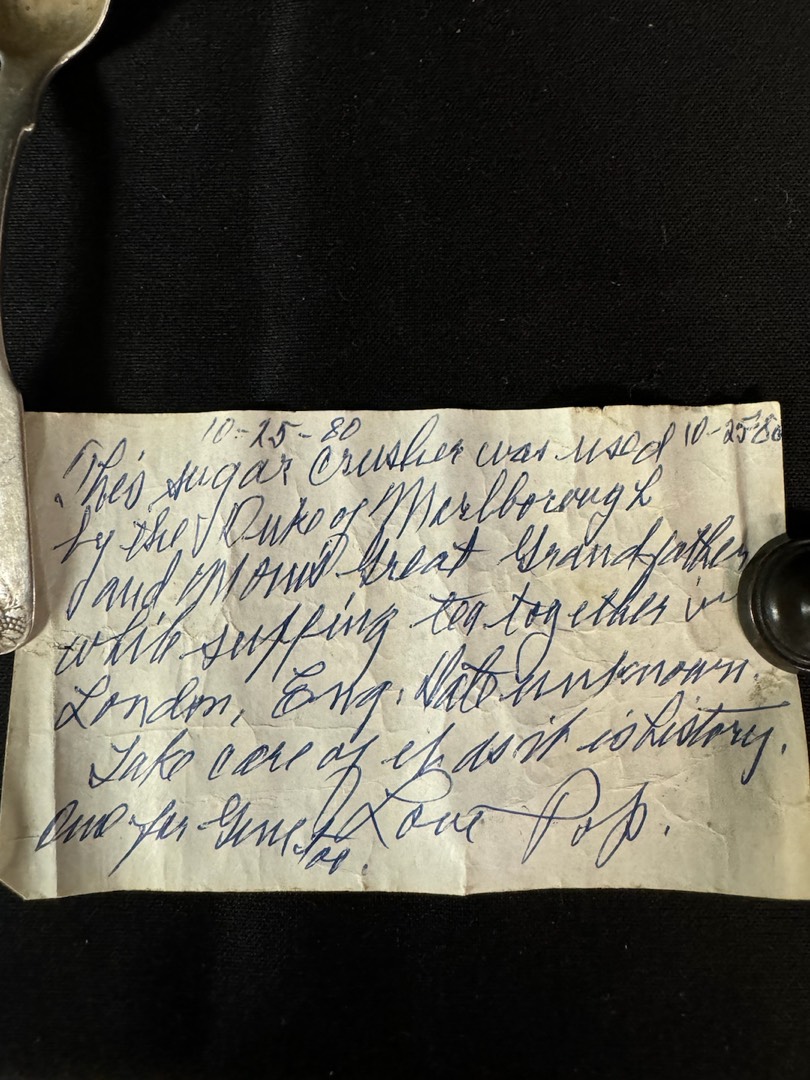 10-25-80
This sugar crusher was used 10-25-80
by the Duke of Marlborough
and Mom's Great Grandfather
while supping tea together in
London, Eng. Date unknown.
Take care of it as it is history.
One for Gene too. Love Pop.